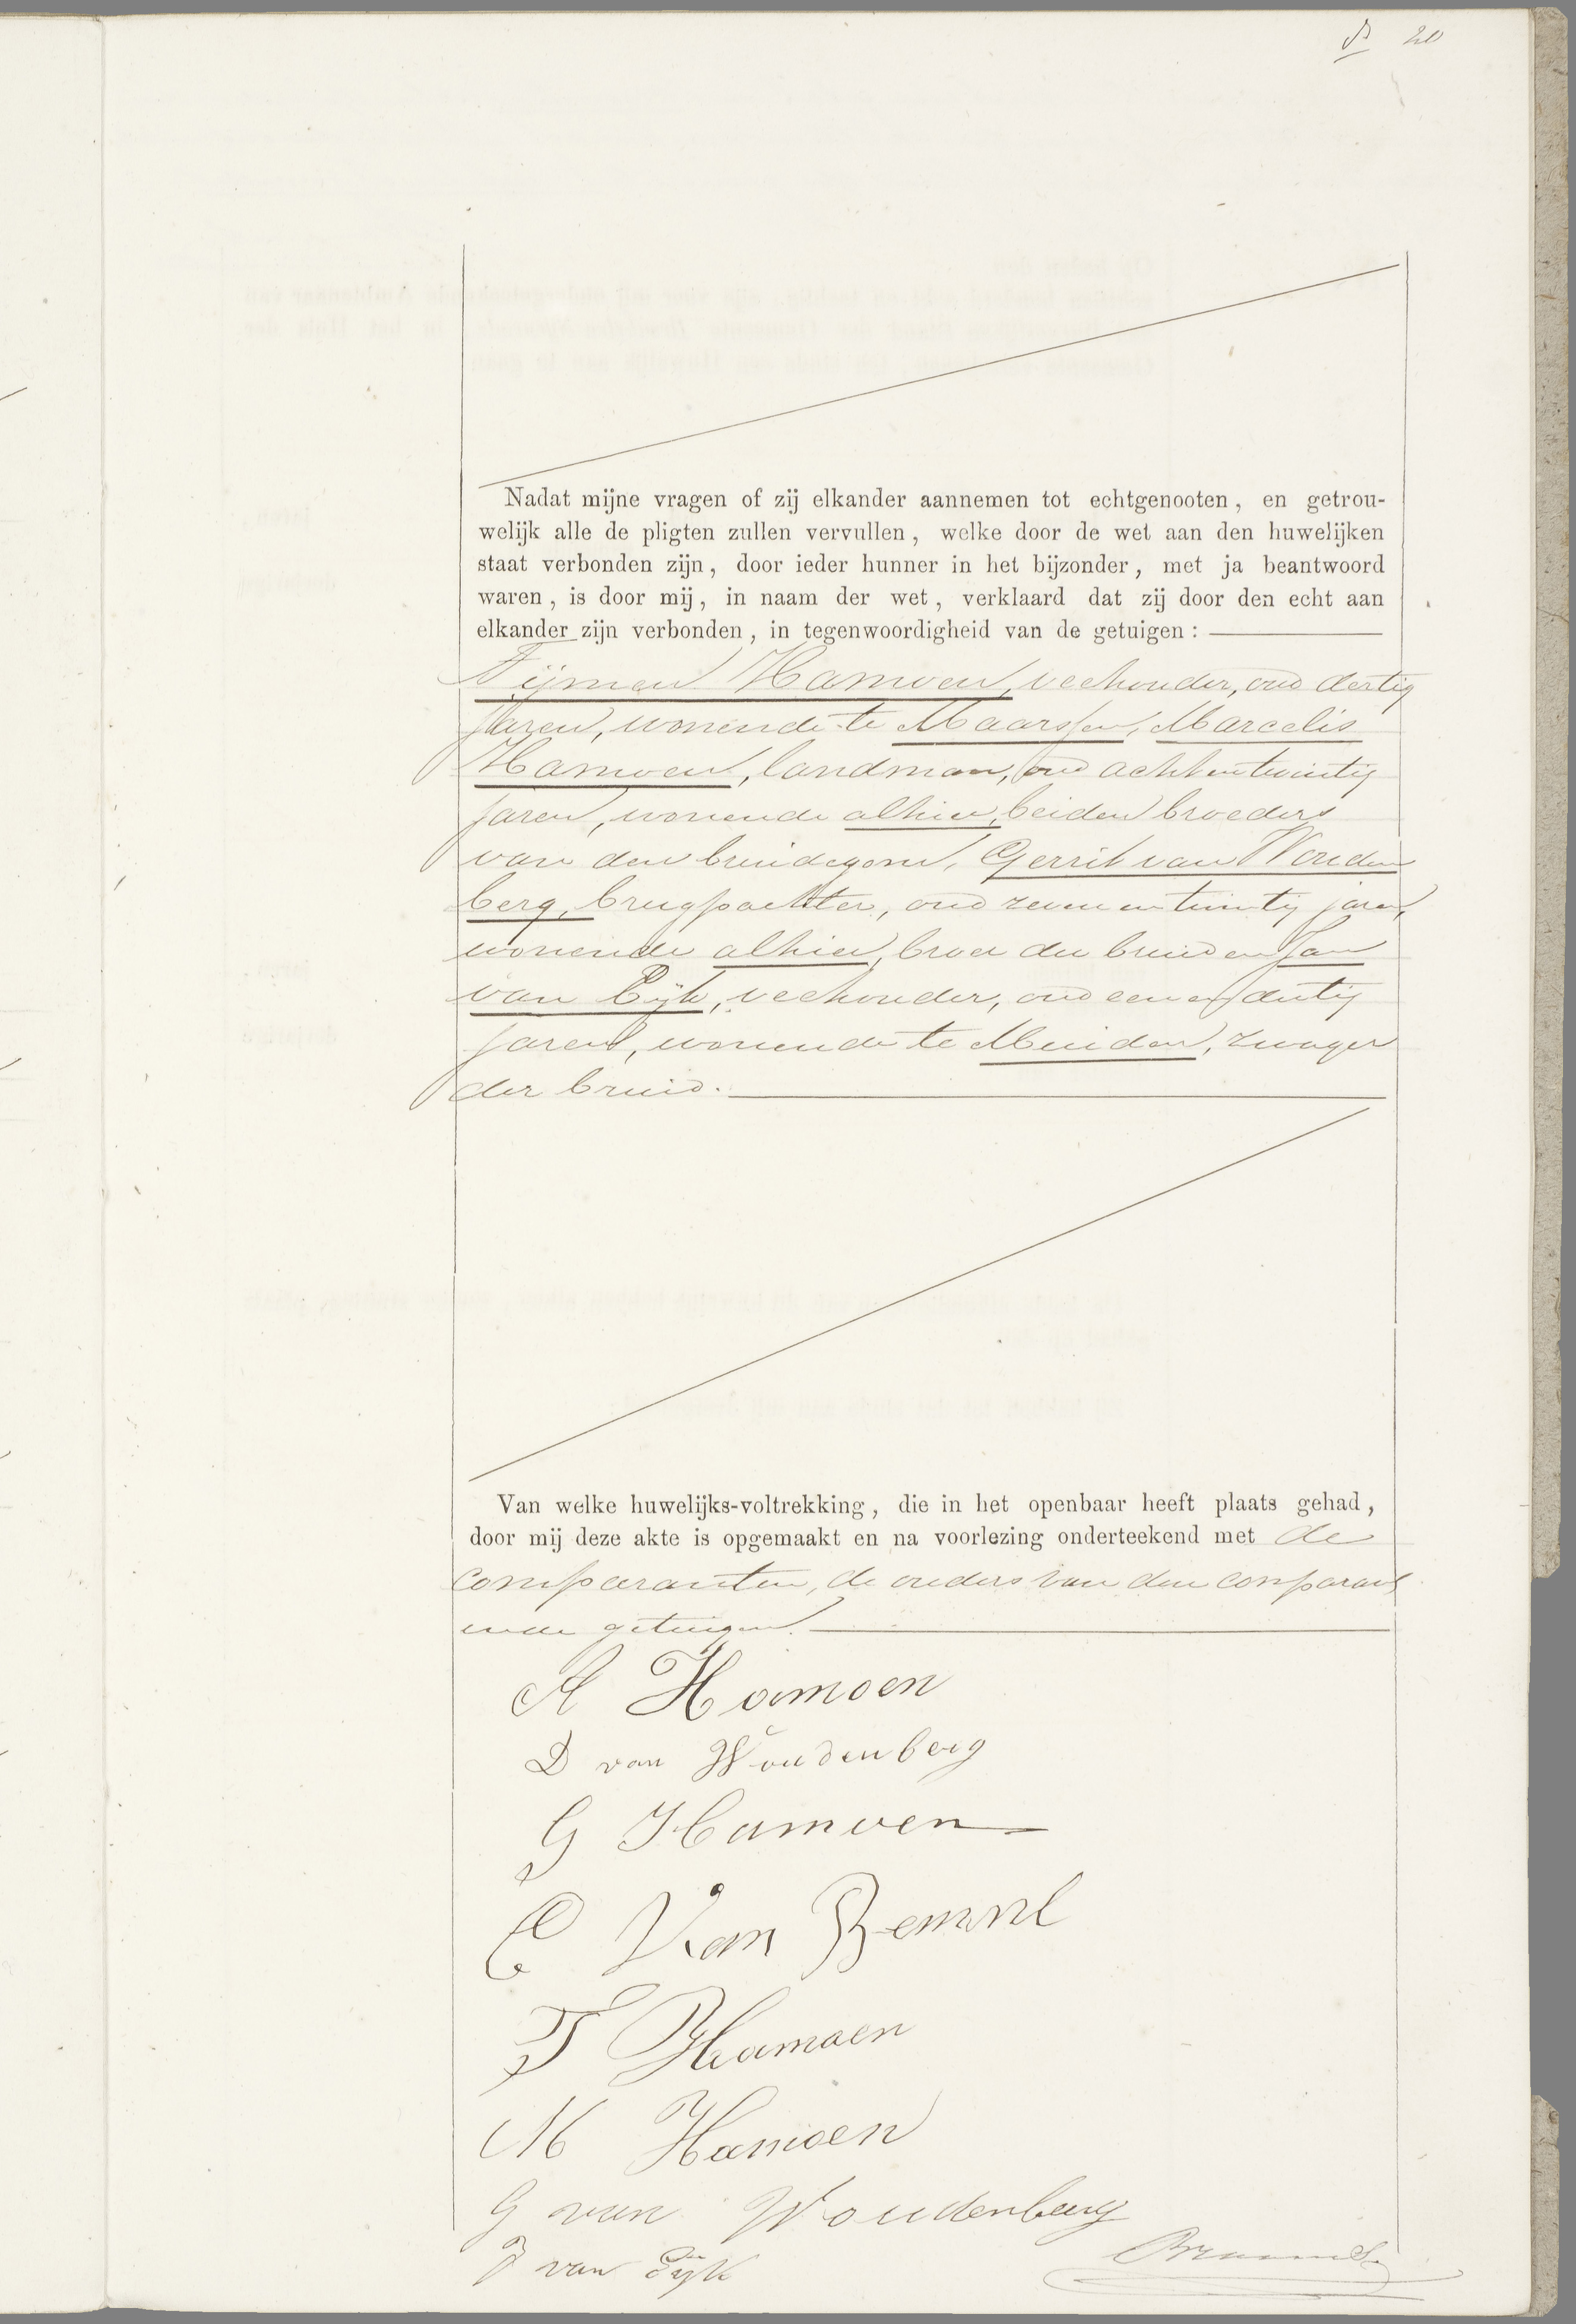 20
Nadat mijne vragen of zij elkander aannemen tot echtgenooten, en getrou-
welijk alle de pligten zullen vervullen, welke door de wet aan den huwelijken
staat verbonden zijn, door ieder hunner in het bijzonder, met ja beantwoord
waren, is door mij, in naam der wet, verklaard dat zij door den echt aan
elkander zijn verbonden, in tegenwoordigheid van de getuigen:
Tijmen Hamoen, veehouder, oud dertig
jaren, wonende te Maarssen, Marcelis
Hamoen, landman, oud achtentwintig
jaren, wonende alhier, beiden broeders
van den bruidegom, Gerrit van Wouden
berg, brugpachter, oud zevenentwintig jaren,
wonende alhier, broer der bruid en Jan
van Eijk, veehouder, oud eenendertig
jaren, wonende te Muiden, zwager
der bruid.
Van welke huwelijks-voltrekking, die in het openbaar heeft plaats gehad,
door mij deze akte is opgemaakt en na voorlezing onderteekend met de
comparanten, de ouders van den comparant
en de getuigen.
A Hamoen
D van Woudenberg
G Hamoen
C Van Bemmel
T Hamoen
M Hamoen
G van Woudenberg
J van Eyk